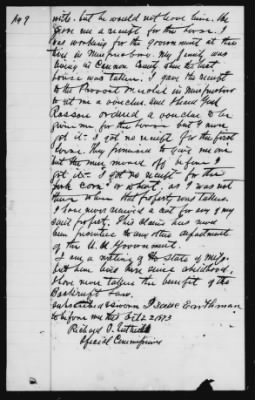 No 9
note. but he would not have time. He
gave me a receipt for this horse. I
was working for the government at the
time in Murfreesboro. My family was
living in Cannon County when the last
horse was taken. I gave the receipt
to the Provost Marshal in Murfreesboro
to get me a voucher and I heard Genl
ordered a voucher to be
given me for the horse but I never
got it. I got no receipt for the first
horse. They promised to give me one
but the men moved off before I
got it. I got no receipt for the
pork corn or wheat, as I was not
there when that property was taken.
I have never received a cent for any of my
said property. This claim has never
been presented to any other department
of the U. S. Government.
I am a of the State of
but have lived here since childhood.
I have never taken the benefit of the
Bankrupt Law.
Subscribed & sworn Isaac Earthman
to before me this 1873
Richard
Special Commissioner